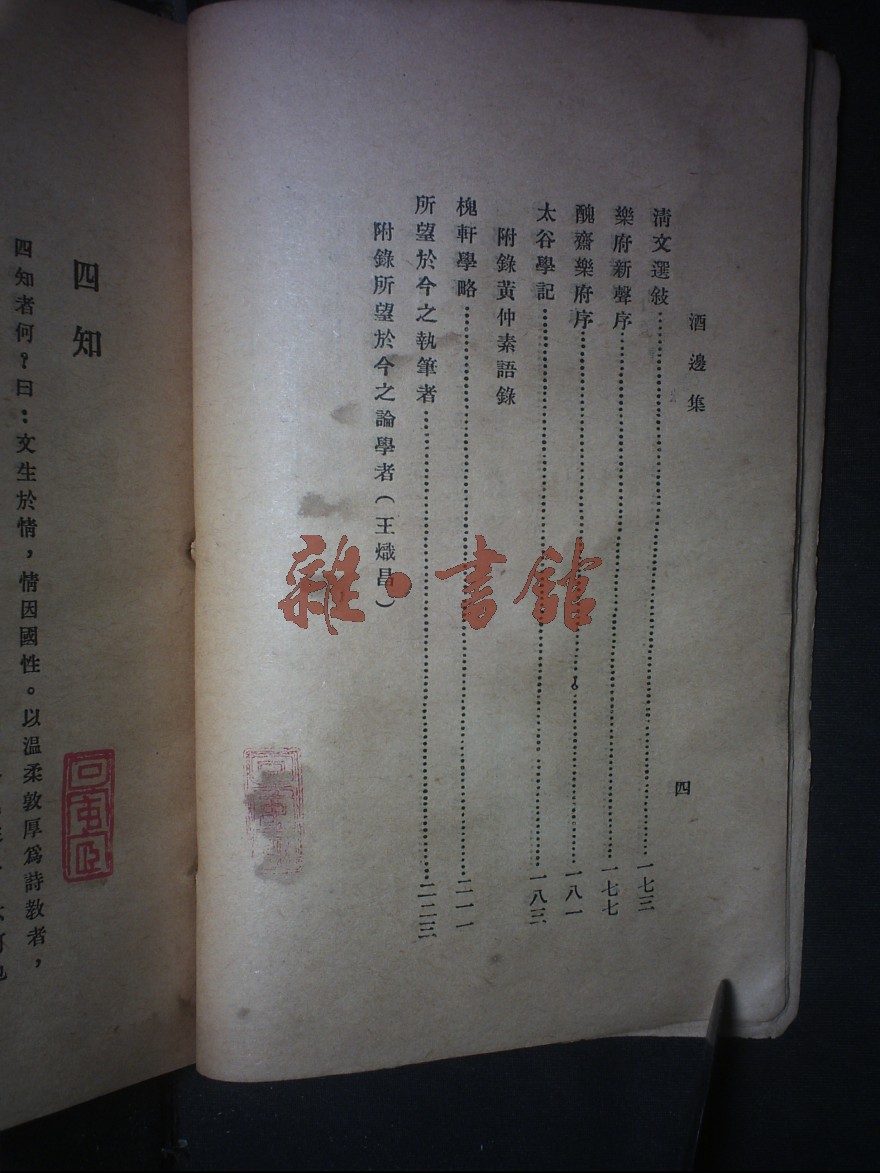 酒邊集
四
清文選敍……一七三
樂府新聲序……一七七
醜齋樂府序……一八一
太谷學記……一八三
附錄黃仲素語錄
槐軒學略……二一一
所望於今之執筆者……二二三
附錄所望於今之論學者(王熾昌)
雜·書館
四知
四知者何?曰:文生於情,情因國性。以温柔敦厚爲詩教者,